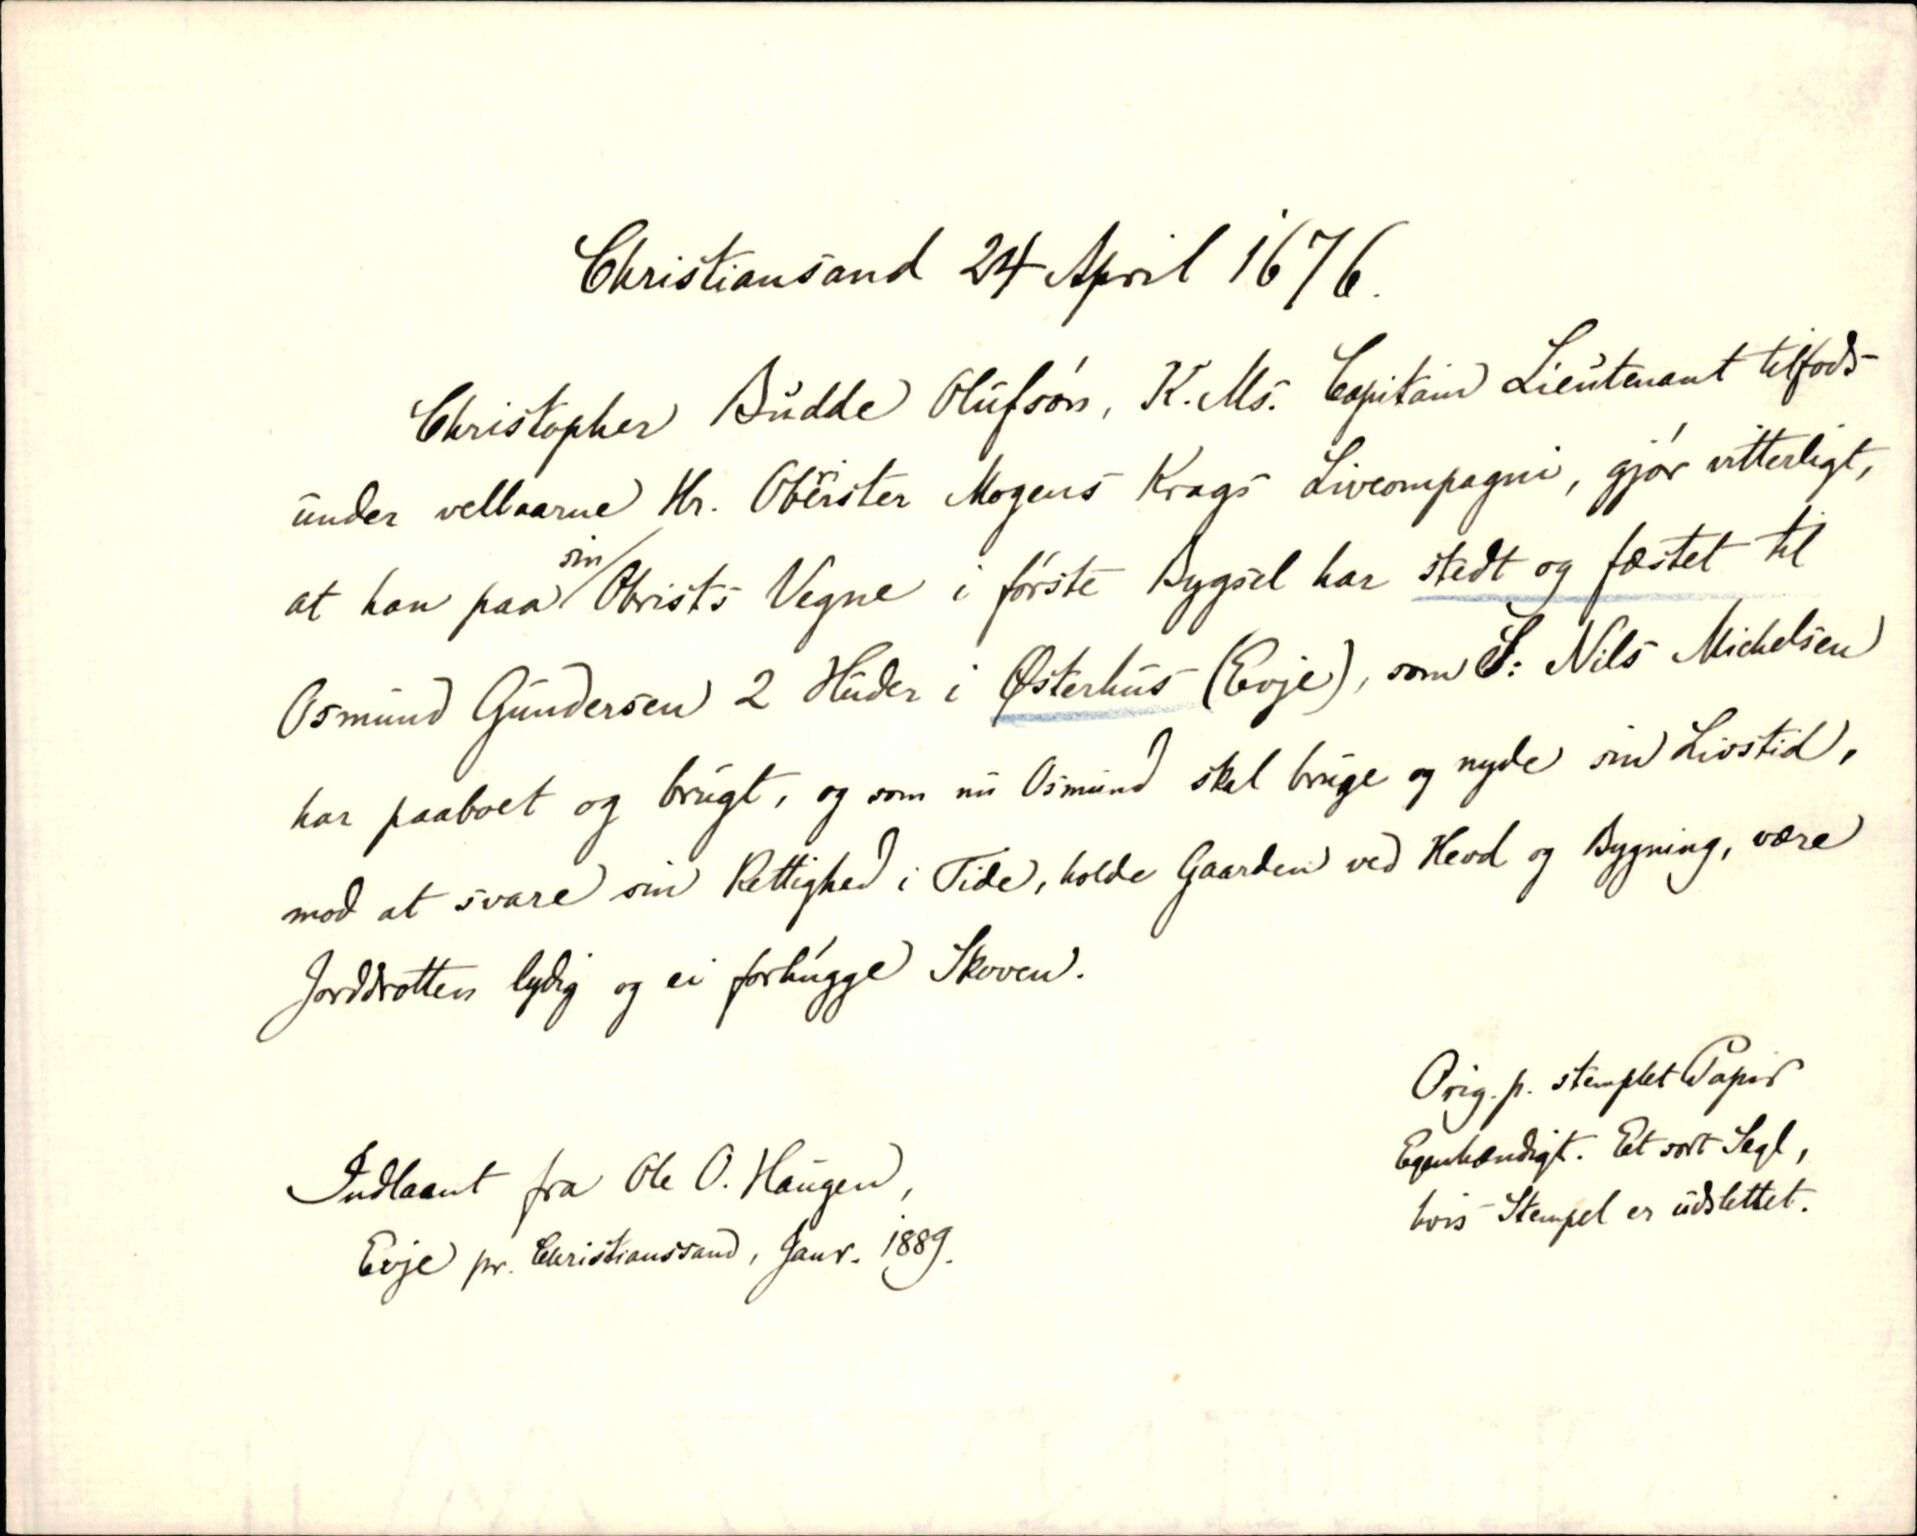 Christiansand 24 April 1676.
Christopher Budde Olufsøn, K. Ms. Capitain Lieutenant tilfods
under velbaarne Hr. Obërister Mogens Krags Livcompagni, gjør vitterligt,
at han paa sin Obrists Vegne i første Bygsel har stedt og fæstet til
Osmund Gundersen 2 Huder i Østerhus (Evje), som S: Nils Michelsen
har paaboet og brugt, og som nu Osmund skal bruge og nyde sin Livstid,
mod at svare sin Rettighed i Tide, holde Gaarden ved Hevd og Bygning, være
Jorddrotten lydig og ei forhugge Skoven.
Orig. p. stemplet Papir
Egenhændigt. Et sort Segl,
hvis Stempel er udslettet.
Indlaant fra Ole O. Haugen,
Evje pr. Christianssand, Janr. 1889.